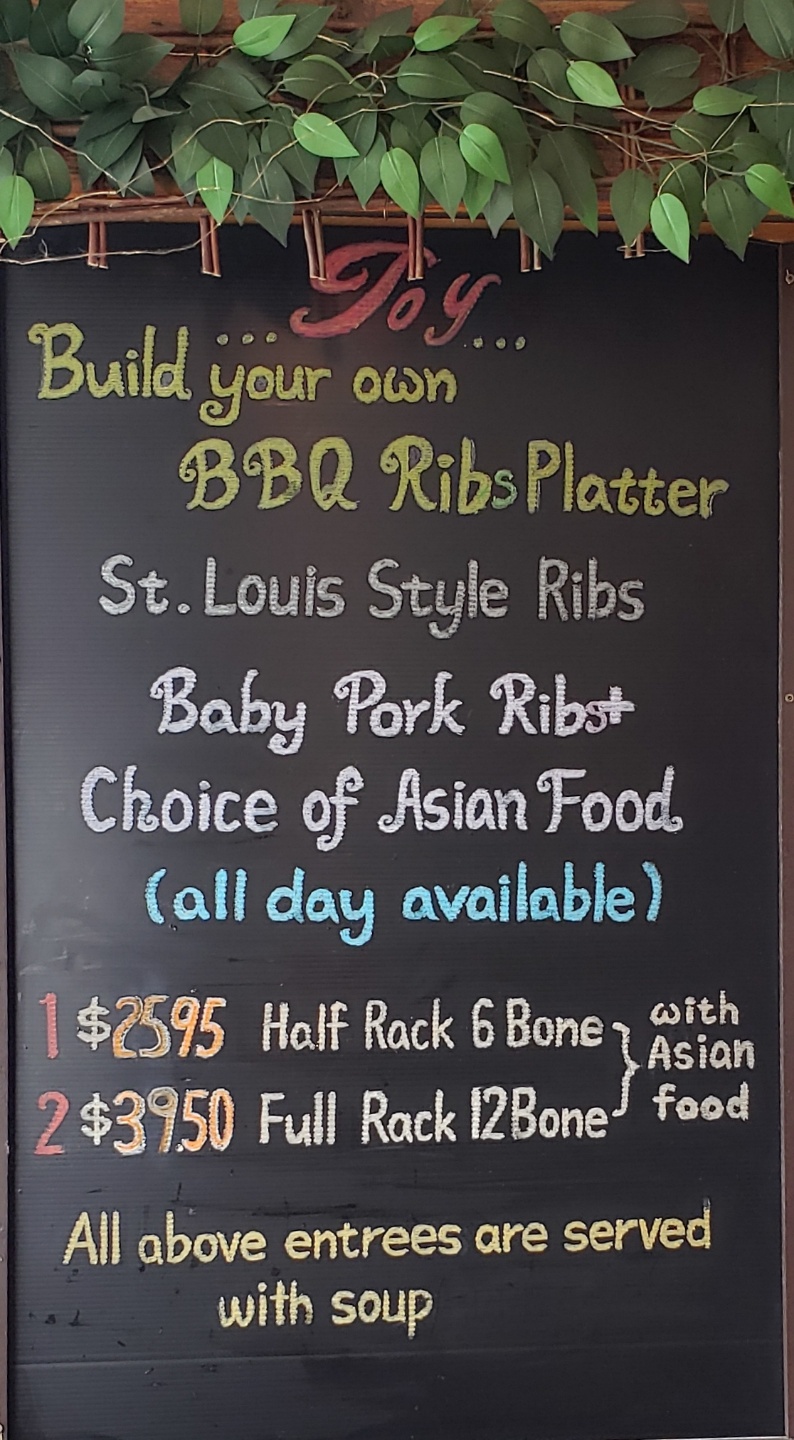 Joy
... Build your own ...
BBQ Ribs Platter
St. Louis Style Ribs
Baby Pork Ribs+
Choice of Asian Food
(all day available)
1 $25 95 Half Rack 6 Bone
2 $39.50 Full Rack 12 Bone
with
Asian
food
All above entrees are served
with soup